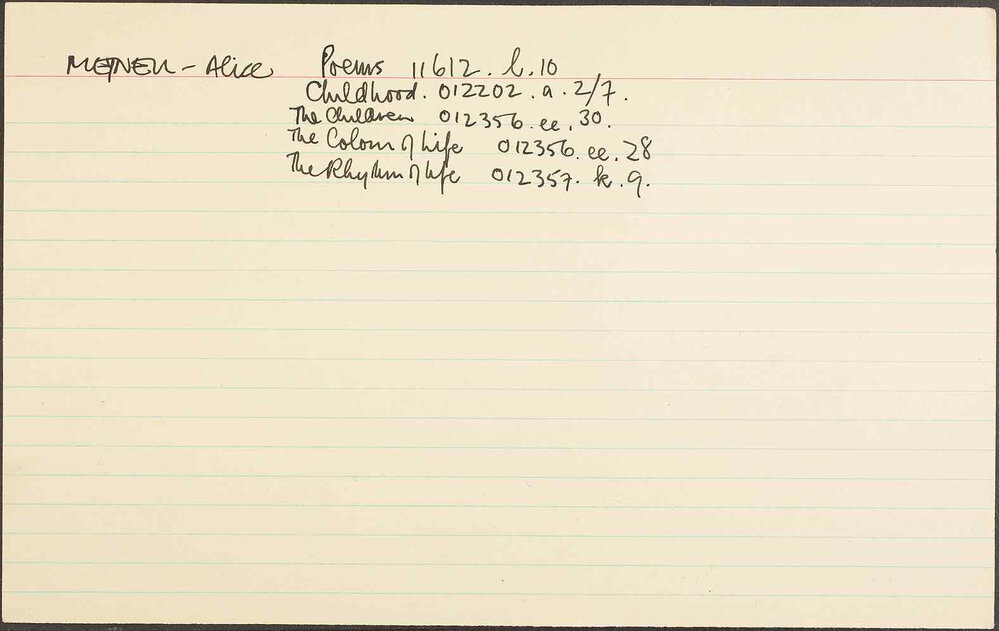 MEYNELL - Alice Poems 11612. l. 10
Childhood. 012202. a. 2/7.
The Children 012356. ee. 30.
The Colour of Life 012356. ee. 28
The Rhythm of Life 012357. k. 9.